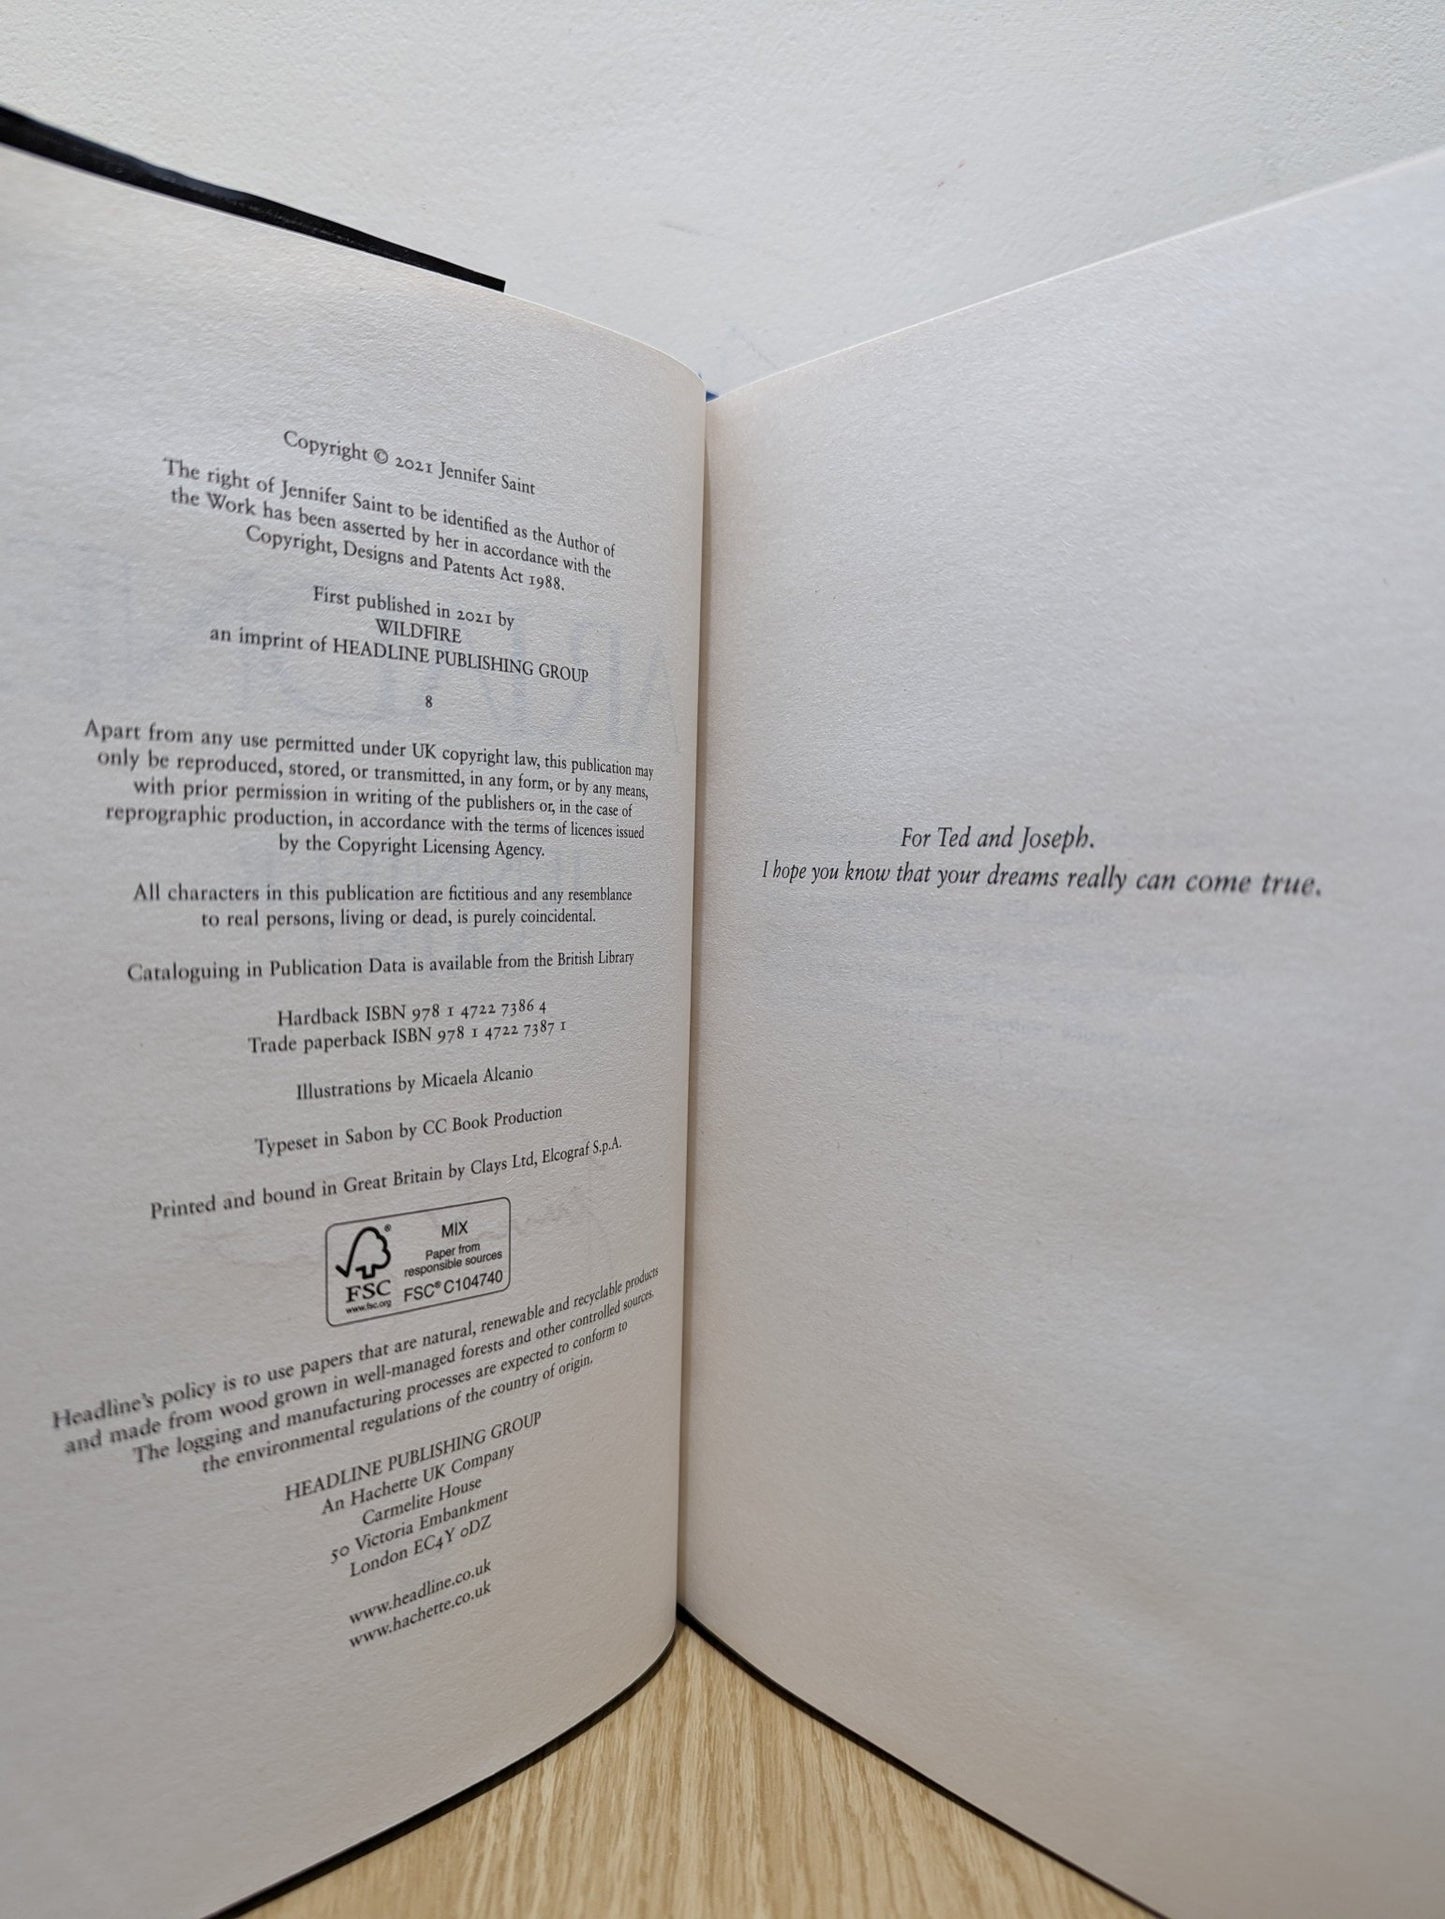 Copyright © 2021 Jennifer Saint
The right of Jennifer Saint to be identified as the Author of
the Work has been asserted by her in accordance with the
Copyright, Designs and Patents Act 1988.
First published in 2021 by
WILDFIRE
an imprint of HEADLINE PUBLISHING GROUP
8
Apart from any use permitted under UK copyright law, this publication may
only be reproduced, stored, or transmitted, in any form, or by any means,
with prior permission in writing of the publishers or, in the case of
reprographic production, in accordance with the terms of licences issued
by the Copyright Licensing Agency.
All characters in this publication are fictitious and any resemblance
to real persons, living or dead, is purely coincidental.
Cataloguing in Publication Data is available from the British Library
Hardback ISBN 978 1 4722 7386 4
Trade paperback ISBN 978 1 4722 7387 1
Illustrations by Micaela Alcanio
Typeset in Sabon by CC Book Production
Printed and bound in Great Britain by Clays Ltd, Elcograf S.p.A.
MIX
Paper from
responsible sources
FSC® C104740
FSC
www.fsc.org
Headline's policy is to use papers that are natural, renewable and recyclable products
and made from wood grown in well-managed forests and other controlled sources.
The logging and manufacturing processes are expected to conform to
the environmental regulations of the country of origin.
HEADLINE PUBLISHING GROUP
An Hachette UK Company
Carmelite House
50 Victoria Embankment
London EC4Y 0DZ
www.headline.co.uk
www.hachette.co.uk
For Ted and Joseph.
I hope you know that your dreams really can come true.